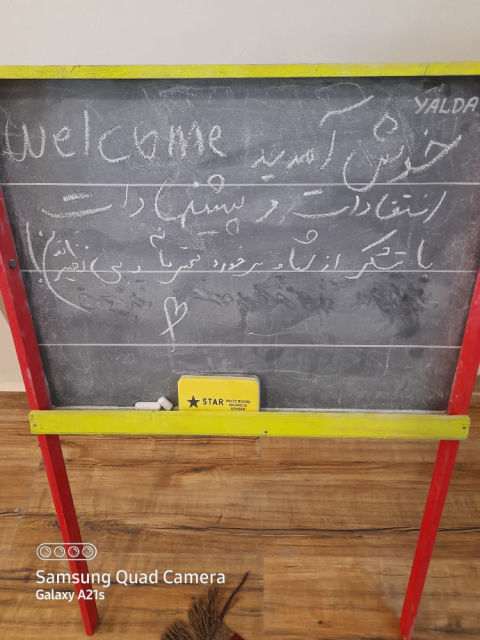 YALDA
welcome خوش آمدید
انتقادات و پیشنهادات
با تشکر از شما و برخورد محترمانه
STAR WHITE BOARD MAGNETIC ERASER
Samsung Quad Camera
Galaxy A21s